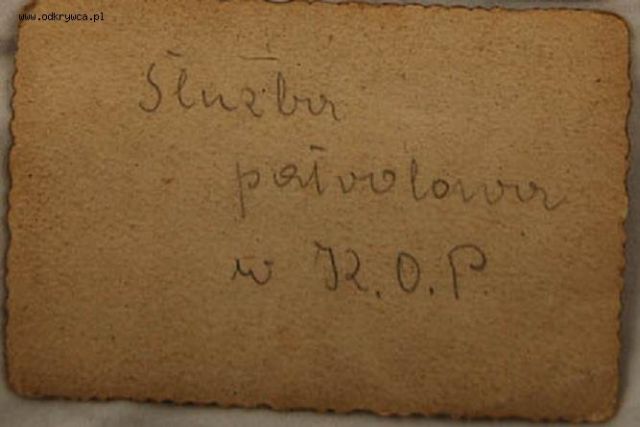 www.odkrywca.pl
Służba
patrolowa
w K.O.P.